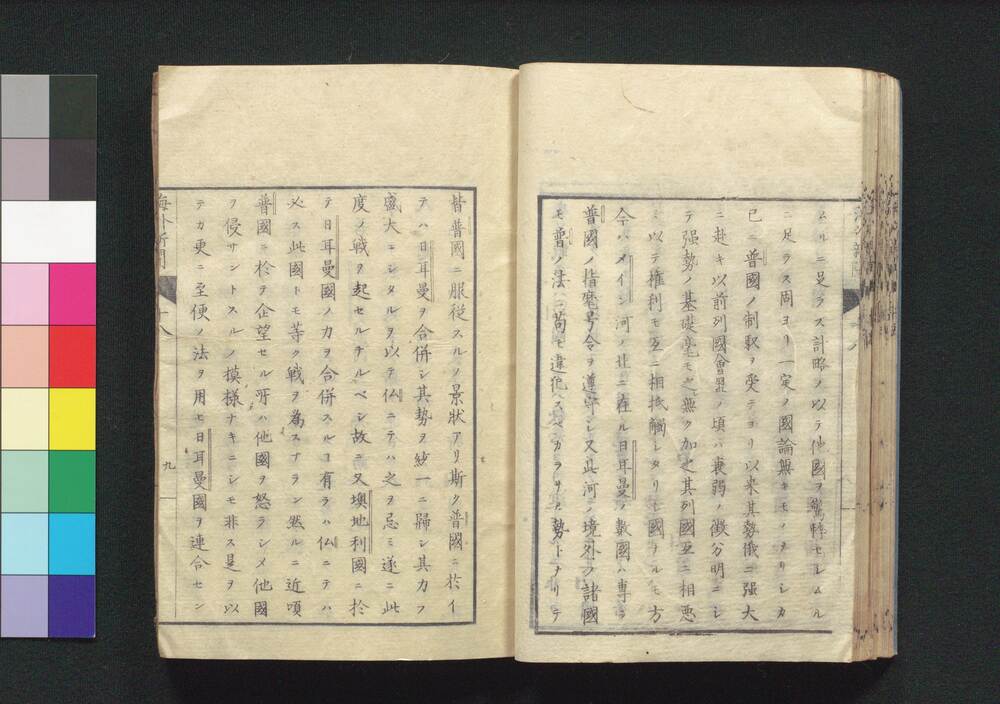 ムルニ足ラス計略ノ以テ他國ヲ驚悸セシムル
ニ足ラス周ヨリ一定ノ國論無キモノヲリシカ
已ニ普國ノ制馭ヲ受テヨリ以来其勢俄ニ强大
ニ赴キ以前列國會盟ノ頃ハ衰弱ノ徴分明ニシ
テ强勢ノ基礎毫モ之無ク加之其列國互ニ相悪
ミ以テ權利モ互ニ相抵觸シタリ亡國ヲルモ方
今ハメイン河ノ北ニ在ル日耳曼ノ數國ハ專ラ
普國ノ指麾号令ヲ遵守シ又此河ノ境外ノ諸國
モ普ノ法ニ苟モ違他スヘカラサル勢トナリテ
皆普國ニ服從スルノ景狀アリ斯ク普國ニ於イ
テハ日耳曼ヲ合併シ其勢ヲ統一ニ歸シ其力ヲ
盛大ニシタルヲ以テ仏ニテハ之ヲ忌ミ遂ニ此
度ノ戰ヲ起セルナルベシ故ニ又墺地利國ニ於
テ日耳曼國ノ力ヲ合併スルヿ有ラハ仏ニテハ
必ス此國トモ等ク戰ヲ為スナラン然ルニ近頃
普國ニ於テ企望セル所ハ他國ヲ怒ラシメ他國
ヲ侵サントスルノ模様ナキニシモ非ス是ヲ以
テカ更ニ至便ノ法ヲ用モ日耳曼國ヲ連合セン
海外新聞 十八 九